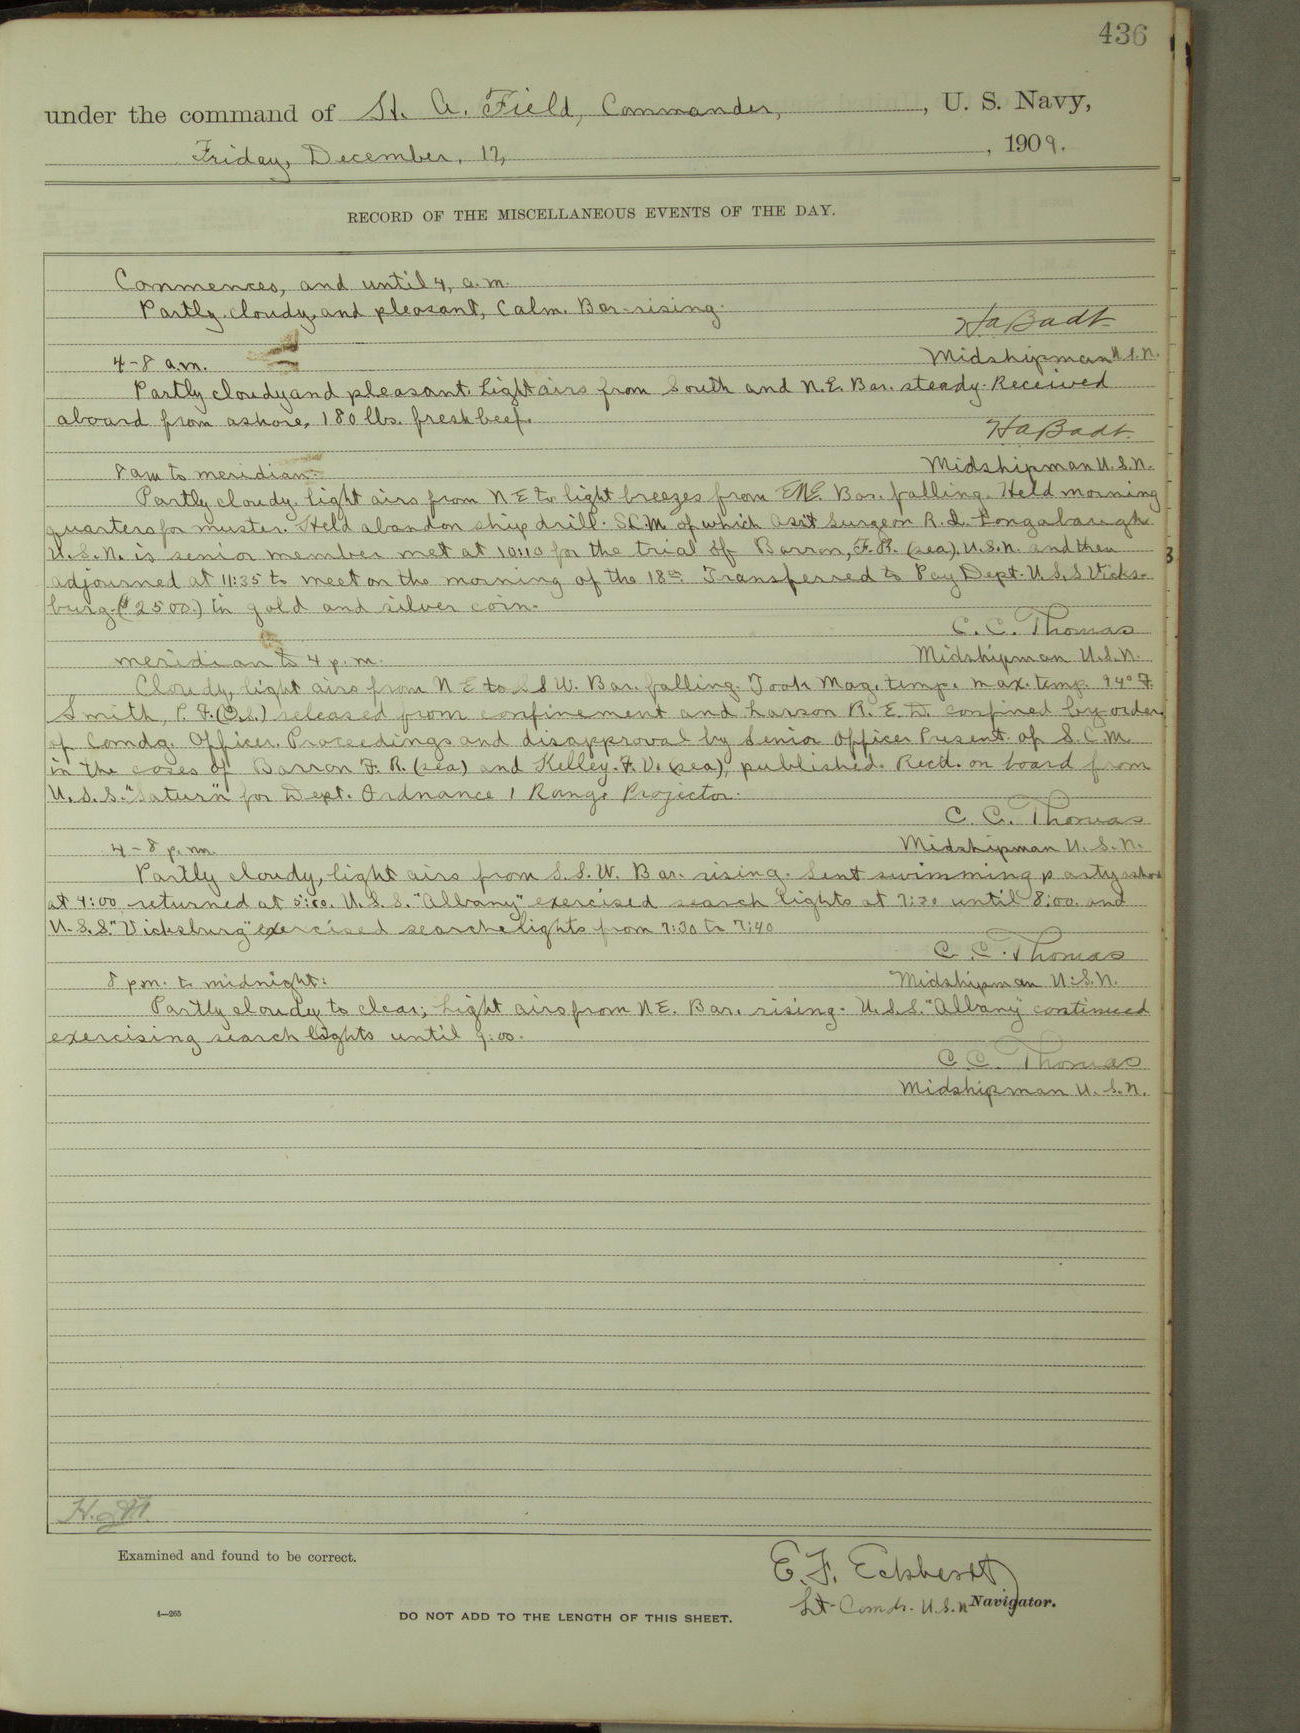 436
under the command of H. A. Field, Commander, , U. S. Navy,
Friday, December, 17, , 1909.
RECORD OF THE MISCELLANEOUS EVENTS OF THE DAY.
Commences, and until 4, a.m.
Partly cloudy and pleasant, Calm. Bar. rising.
Ha Badt
4-8 a.m.
Midshipman U.S.N.
Partly cloudy and pleasant. Light airs from South and N.E. Bar. steady. Received
aboard from ashore, 180 lbs. fresh beef.
Ha Badt.
8 am to meridian:
Midshipman U.S.N.
Partly cloudy. light airs from NE to light breezes from ENE. Bar. falling. Held morning
quarters for muster. Held abandon ship drill. S.C.M. of which Ass't Surgeon R. I. Longabaugh
U.S.N. is senior member met at 10:10 for the trial of Barron, F.R. (sea), U.S.N. and then
adjourned at 11:35 to meet on the morning of the 18th Transferred to Pay Dept. U.S.S Vicks-
burg. ($2500.) in gold and silver coin.
C. C. Thomas
meridian to 4 p.m.
Midshipman U.S.N.
Cloudy, light airs from NE to SSW. Bar. falling. Took Mag. temp. max. temp. 94° F.
Smith, P. F. (O.S.) released from confinement and Larson R. E. D. confined by order
of Comdg. Officer. Proceedings and disapproval by Senior Officer Present of S.C.M.
in the cases of Barron F. R. (sea) and Kelley. F. V. (sea), published. Recd. on board from
U.S.S. "Saturn" for Dept. Ordnance 1 Range Projector.
C. C. Thomas
4-8 p.m.
Midshipman U.S.N.
Partly cloudy, light airs from S.S.W. Bar. rising. Sent swimming party ashore
at 4:00 returned at 5:00. U.S.S. "Albany" exercised search lights at 7:30 until 8:00. and
U.S.S. "Vicksburg" exercised search lights from 7:30 to 7:40
C. C. Thomas
8 p.m. to midnight:
Midshipman U.S.N.
Partly cloudy to clear; Light airs from NE. Bar. rising. U.S.S. "Albany" continued
exercising search lights until 9:00.
C. C. Thomas
Midshipman U.S.N.
Examined and found to be correct.
E. F. Eckhardt
Lt-Comdr. U.S.N Navigator.
4—265
DO NOT ADD TO THE LENGTH OF THIS SHEET.